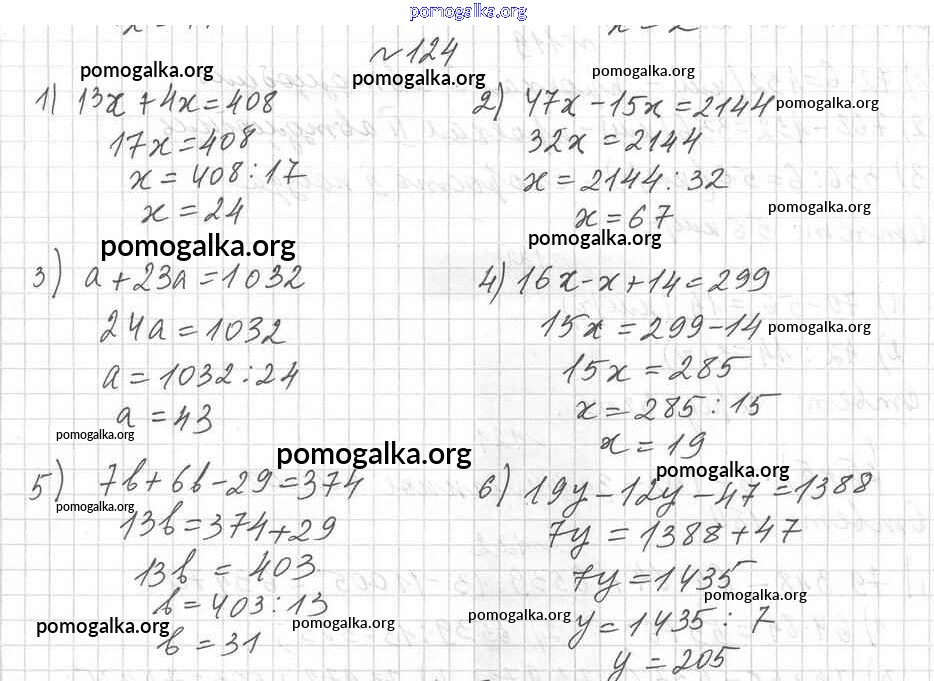 pomogalka.org
№124
pomogalka.org
pomogalka.org
pomogalka.org
1) 13x + 4x = 408
17x = 408
x = 408 : 17
x = 24
2) 47x - 15x = 2144
pomogalka.org
32x = 2144
x = 2144 : 32
x = 67
pomogalka.org
pomogalka.org
pomogalka.org
3) a + 23a = 1032
24a = 1032
a = 1032 : 24
a = 43
pomogalka.org
4) 16x - x + 14 = 299
15x = 299 - 14
pomogalka.org
15x = 285
x = 285 : 15
x = 19
pomogalka.org
pomogalka.org
5) 7b + 6b - 29 = 374
pomogalka.org
13b = 374 + 29
13b = 403
b = 403 : 13
b = 31
pomogalka.org
pomogalka.org
6) 19y - 12y - 47 = 1388
7y = 1388 + 47
7y = 1435
pomogalka.org
pomogalka.org
y = 1435 : 7
y = 205